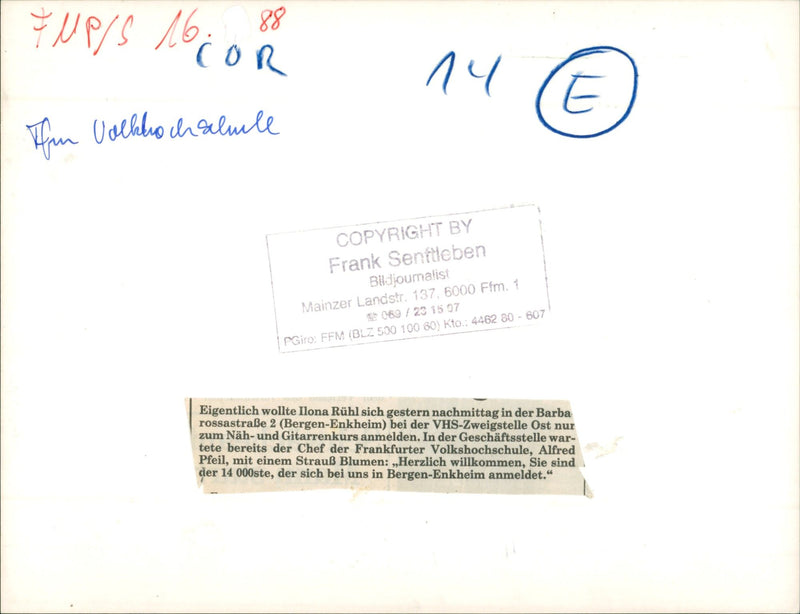 FNP/S 16. 88
COR
14 E
Ffm Volkhochschule
COPYRIGHT BY
Frank Senftleben
Bildjournalist
Mainzer Landstr. 137, 6000 Ffm. 1
☎ 069 / 23 15 07
PGiro: FFM (BLZ 500 100 60) Kto.: 4462 80 - 607
Eigentlich wollte Ilona Rühl sich gestern nachmittag in der Barba
rossastraße 2 (Bergen-Enkheim) bei der VHS-Zweigstelle Ost nur
zum Näh- und Gitarrenkurs anmelden. In der Geschäftsstelle war-
tete bereits der Chef der Frankfurter Volkshochschule, Alfred
Pfeil, mit einem Strauß Blumen: „Herzlich willkommen, Sie sind
der 14 000ste, der sich bei uns in Bergen-Enkheim anmeldet.“